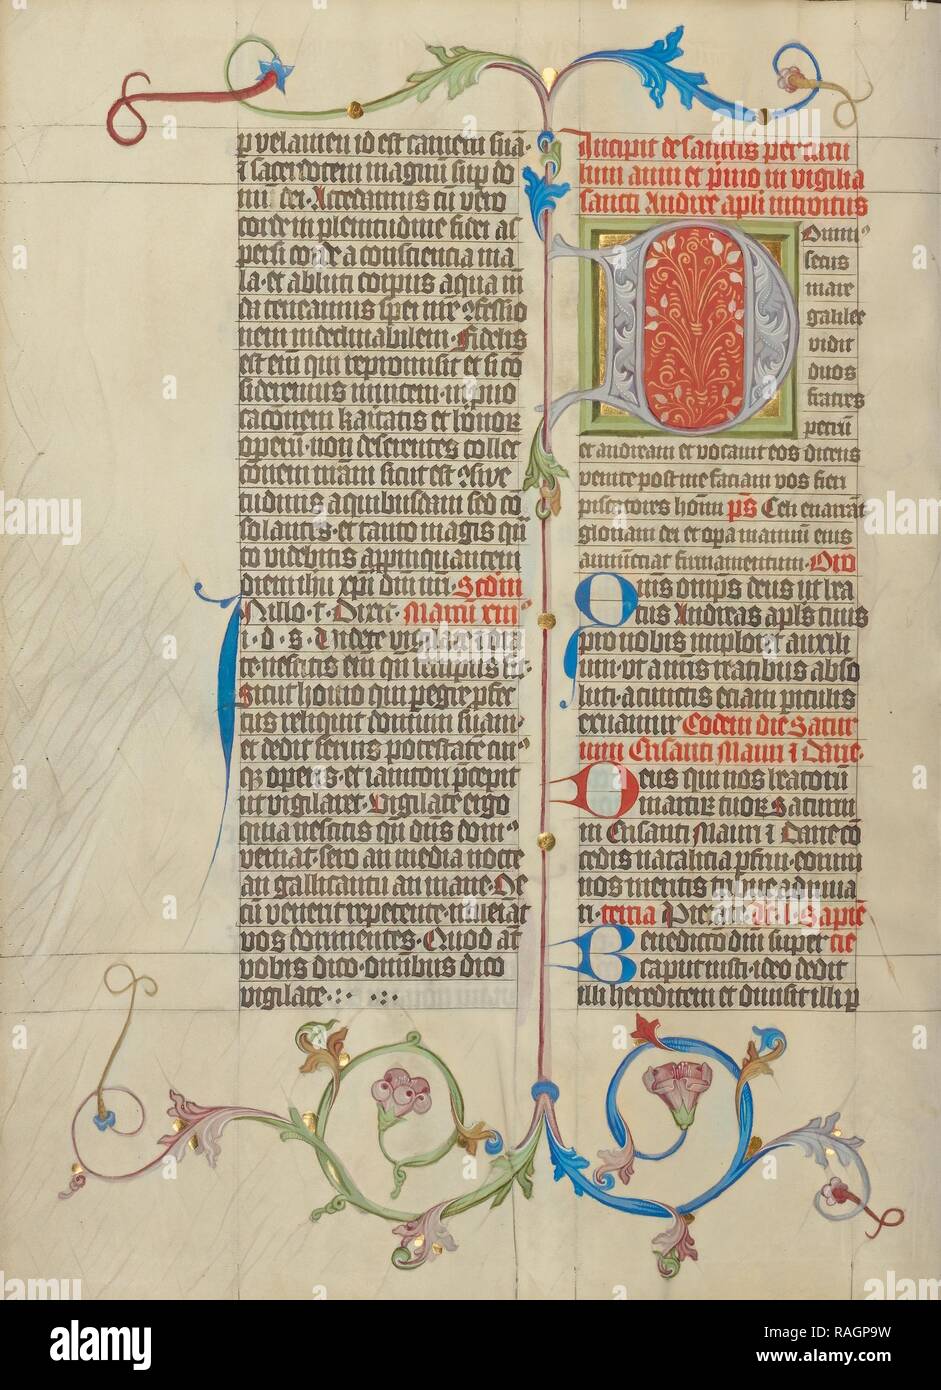 p velamen id est carnem suā·
⁊ sacerdotem magnū sup do
mū dei· Accedamus cū vero
corde in plenitudine fidei as
persi corde a consciencia ma
la· et abluti corpus aqua mū
da teneamus spei nr̄e ꝯfessio
nem indeclinabilem· Fidelis
est eī qui repromisit et si cō
sideremus inuicem· in puo
cacōnem karitatis et honoꝝ
operū· non deserentes collec
cōnem nr̄am sicut est ꝯswe
tudinis a quibusdam sed cō
solantes· et tanto magis qūto
videbitis appinquantem
diem ihū xp̄i dn̄i nr̄i· Scdm
Nillo· t· Dixit· Marcū xiii
i· d· s· Videte vigilate ⁊ ora
te nescitis eī qn̄ tempus sit·
Sicut homo qui pegre pfec
tus reliquit domum suam·
et dedit seruis potestatē cui⁹
qꝫ operis· et ianitori pcepit
ut vigilaret· Vigilate ergo
quia nescitis qn̄ dn̄s dom⁹
veniat· sero an media nocte
an gallicantu an mane· Ne
cū venerit repente· inueiat
vos dormientes· Quod aūt
vobis dico· omībus dico
vigilate·:· ·:·
Incipit de sanctis per circu
lum anni et pīmo in vigilia
sancti Andree apl̄i introitus
Domin⁹
secus
mare
galilee
vidit
duos
fratres
petrū
et andream et vocauit eos dicens
venite post me faciam vos fieri
piscatores homī p̄s Celi enarrāt
gloriam dei et opa manuū eius
annūciat firmamentum· Orō
Quis omps deus ut bea
tus Andreas apl̄s tuus
pro nobis imploret auxili
um· ut a nr̄is reatibus abso
luti· a cunctis eciam piculis
exuamur Eodem die Satur
nini Crisanti Mauri ⁊ Darie·
Deus qui nos beatorū
martiꝝ tuoꝝ Saturni
ni Crisanti Mauri ⁊ Darie cō
cedis natalicia pfrui· eorum
nos meritis tribue adiuua
ri· tercia Pietate· Ad· l· Sapiē
Benedictio dn̄i super cie
caput iusti· ideo dedit
illi hereditem et diuisit illi p
alamy
Image ID: RAGP9W
www.alamy.com